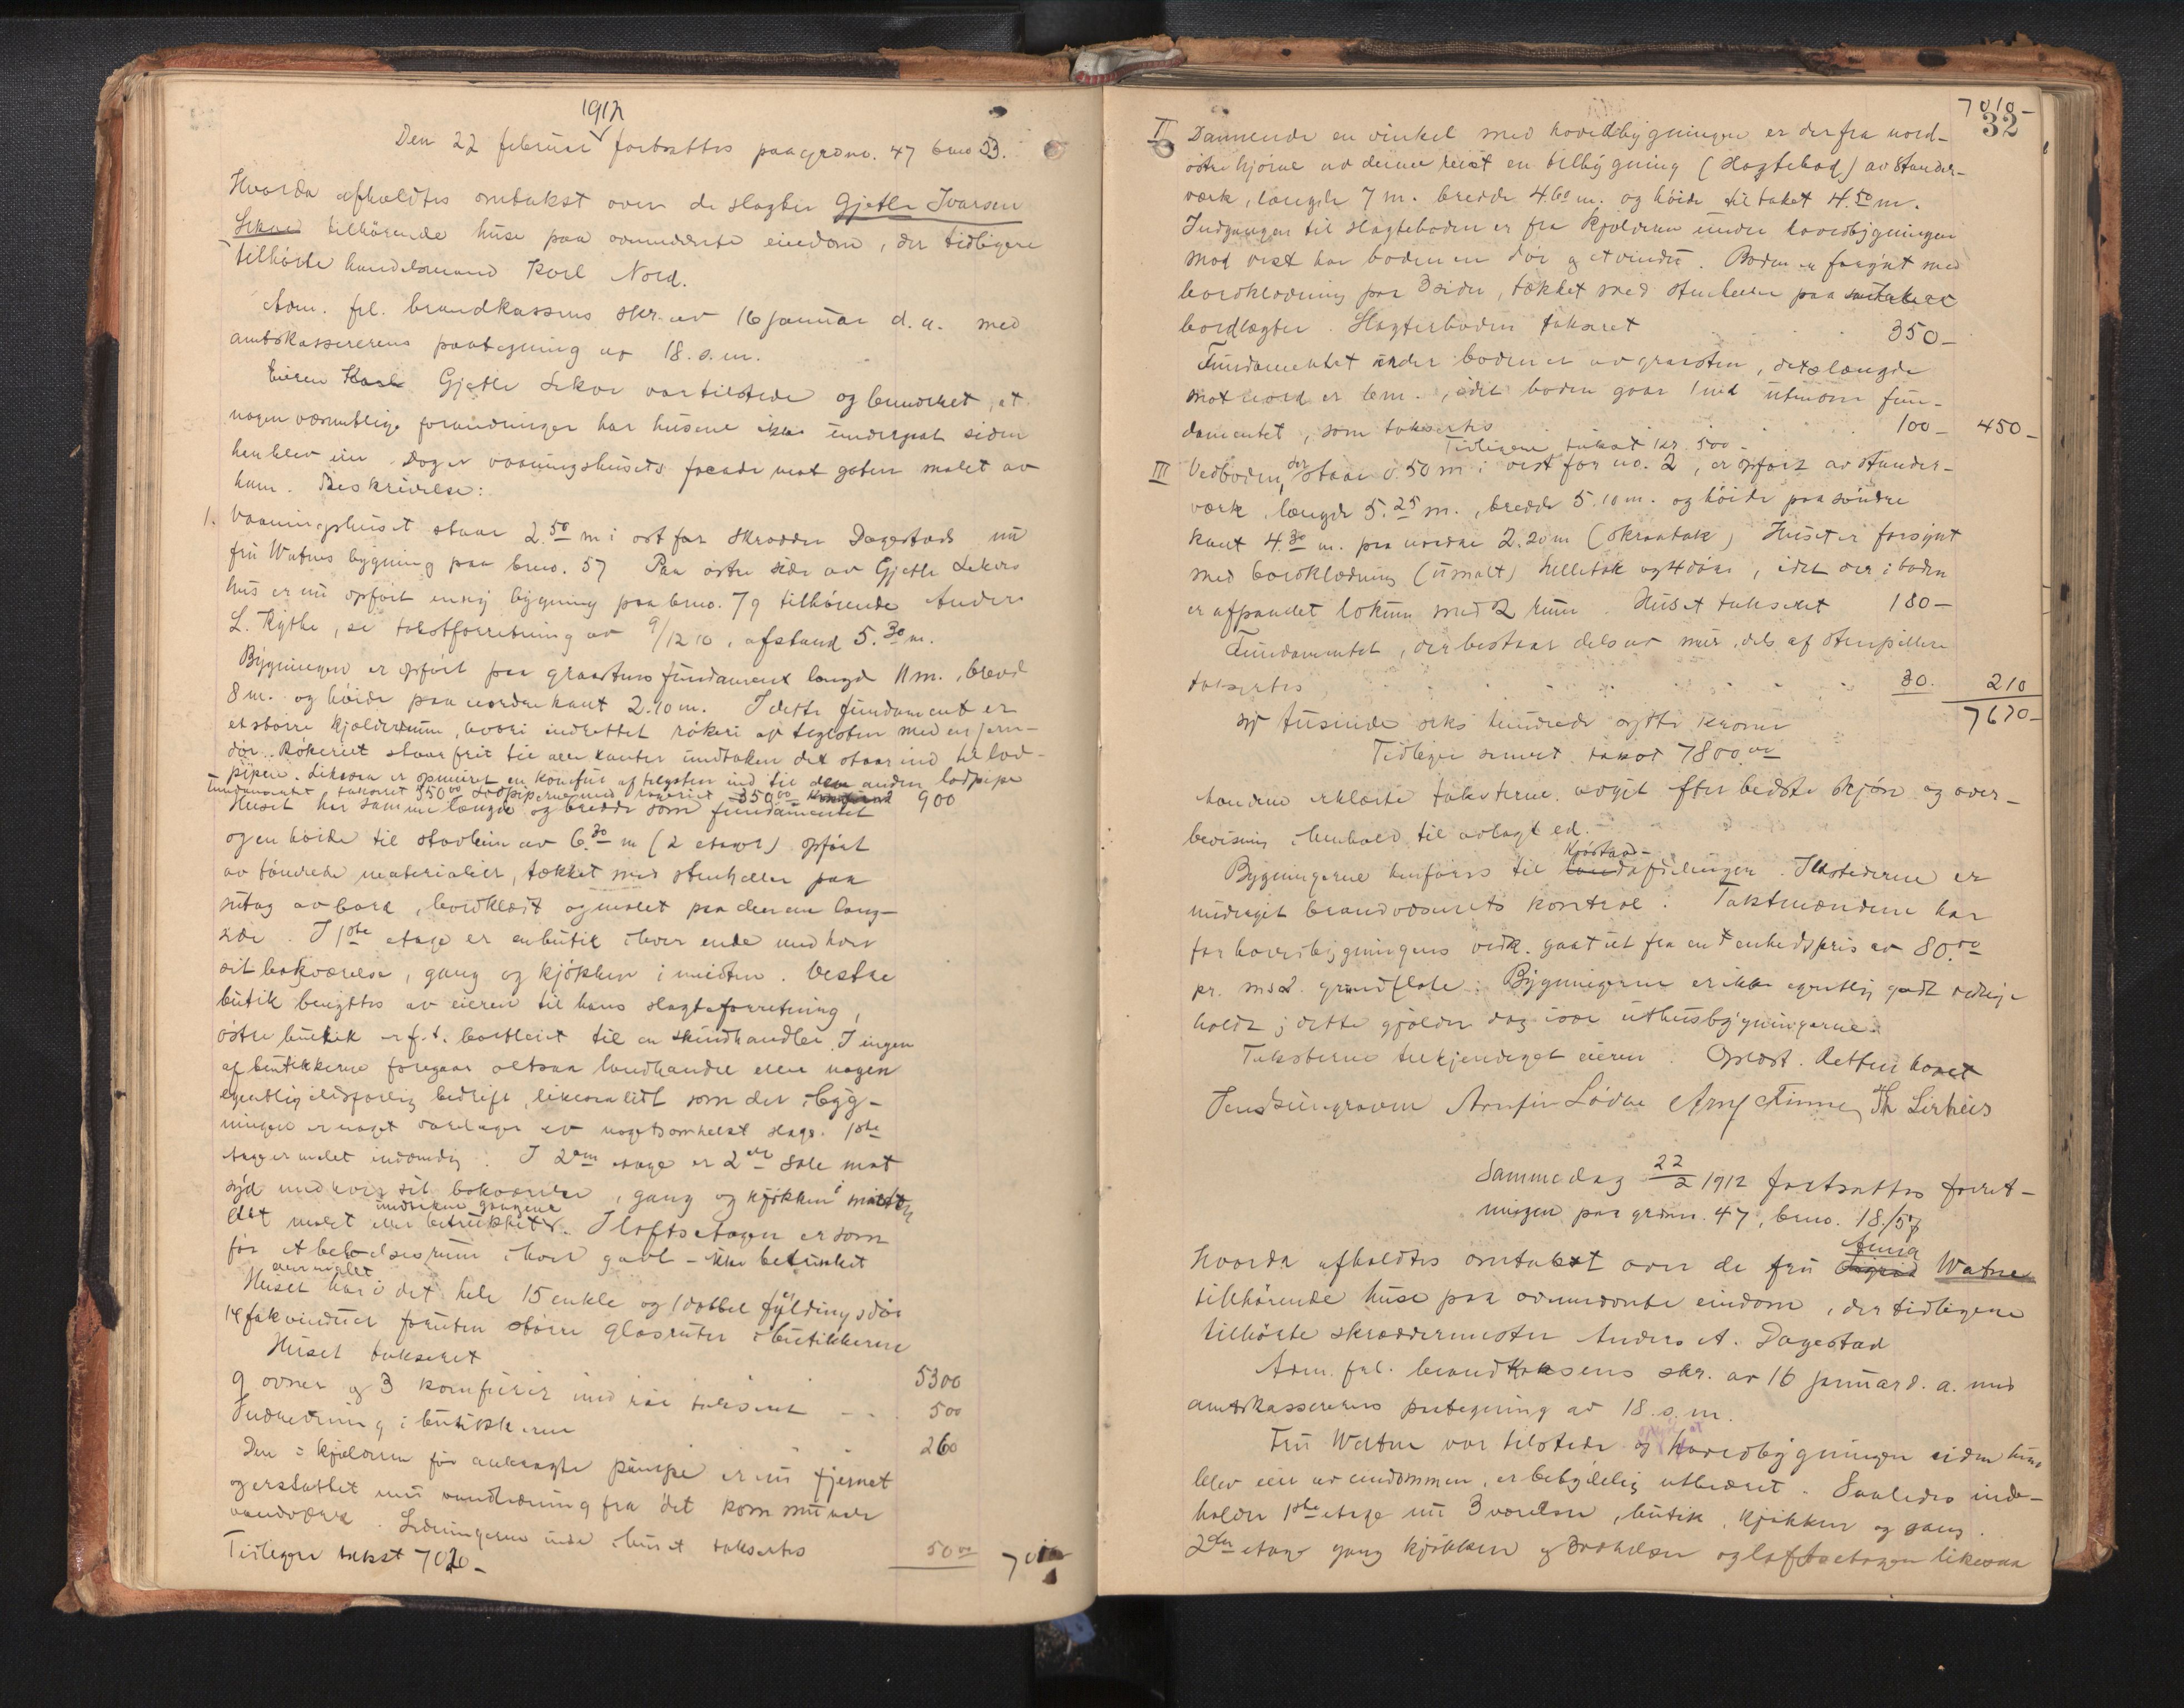 1912
Den 22 februar fortsattes paa grdno. 47 bno 53.
Hvorda afholdtes omtakst over de slagter Gjetle Ivarsen
Lekve tilhörende huse paa ovennævnte eiendom, der tidligere
tilhörte handelsmand Karl Nord.
Adm. frl. brandkassens skr. av 16 januar d. a. med
amtskassererens paategning av 18. s. m.
Eieren Karl Gjetle Lekve var tilstede og bemærket, at
nogen væsentlige forandringer har husene ikke undergaat siden
han blev eier. Dog er vaaningshusets facade mot gaten malet av
ham. Beskrivelse:
1. Vaaningshuset staar 2.50 m i ost for skrædder Dagestads nu
fru Watnes bygning paa bno. 57 Paa östre side av Gjetle Lekves
hus er nu opfört en ny bygning paa bno. 79 tilhörende Anders
L. Rythe, se takstforretning av 9/12 10, afstand 5.30 m.
Bygningen er opfört paa graastens fundament længde 11 m., bredde
8 m. og höide paa nordre kant 2.10 m. I dette fundament er
et större kjælderrum, hvori indrettet rökeri af teglsten med en jern-
dör. Rökeriet staar frit til alle kanter undtaken det staar ind til lod-
pipen. Likesaa er opmuret en komfur af teglsten ind til den anden lodpipe
Fundamentet takseret 550 00 Lodpiperne med rökeriet 350 00 900
Huset har samme længde og bredde som fundamentet
og en höide til stavlein av 6.30 m (2 etager) opfört
av töndrede materialier, tækket med stenheller paa
sutag av bord, bordklædt og malet paa den ene lang-
side. I 1ste etage er en butik i hver ende med hver
sit bakværelse, gang og kjökken i midten. Vestre
butik benyttes av eieren til hans slagteforretning,
östre butik er f. t. bortleiet til en skindhandler. I ingen
af butikkerne foregaar altsaa landhandel eller nogen
egentlig ildsfarlig bedrift, likesaalitt som der i byg-
ningen er noget varelager av nogetsomhelst slags. 1ste
etage er malet indvendig. I 2den etage er 2de sale mot
syd med hver sit bakværelse, gang og kjökken i midten
alt malet eller betrukket undtaken gangene. I loftsetagen er som
för et beboelsesrum i hver gavl - ikke betrukket
eller malet
Huset har i det hele 15 enkle og 1 dobbel fyldingsdör
14 fakvinduer foruten större glasruter i butikkerne
Huset takseret 5300
9 ovner og 3 komfurer med rör takseret 500
Indredning i butikkerne 260
Den i kjælderen för anbragte pumpe er nu fjernet
og erstattet med vandledning fra det kommunale
vandværk. Ledningerne inde i huset takseres 50 00
Tidligere takst 7020 -
7010 -
32
II Dannende en vinkel med hovedbygningen er der fra nord-
östre hjörne av denne reist en tilbygning (slagtebod) av stander-
værk, længde 7 m. bredde 4.60 m. og höide til taket 4.50 m.
Indgangen til slagteboden er fra kjælderen under hovedbygningen
mod vest har boden en dör og et vindu. Boden er forsynt med
bordklædning paa 3 sider, tækket med stenheller paa
bordlægter. Slagterboden takseret 350 -
Fundamentet under boden er av graasten, dets længde
mot nord er 6 m., idet boden gaar 1 m utenom fun-
damentet, som takseres 100 - 450 -
Tidligere takst kr. 500 -
III Vedboden, der staar 0.50 m i vest for no. 2, er opfört av stander-
værk, længde 5.25 m., bredde 5.10 m. og höide paa söndre
kant 4.30 m. paa nordre 2.20 m (skraatak) Huset er forsynt
med bordklædning (umalt) helletak og 4 dörer, idet der i boden
er afpandet lokum med 2 rum. Huset takseret 180 -
Fundamentet, der bestaar dels av mur, dels af stenpillere
takseres 30. 210
7670 -
syv tusinde seks hundrede sytti kroner
Tidligere samlet takst 7800.00
Mændene erklærte taksterne avgit efter bedste skjön og over-
bevisning i henhold til avlagt ed.
Bygningerne henföres til Landafdelingen Kjöstad-. Ildstederne er
undraget brandvæsenets kontrol. Takstmændene har
for hovedbygningens vedk. gaat ut fra en enhedspris av 80.00
pr. ms2. grundflate. Bygningerne er ikke egentlig godt vedlige
holdt; dette gjælder dog især uthusbygningerne.
Taksterne tilkjendegit eieren. Oplæst. Retten hævet
Jens Arnfin Lödve Arnf Finne Th Lirhus
Samme dag 22/2 1912 fortsattes forret-
ningen paa grdno. 47, bno. 18./57
Hvorda afholdtes omtakst over de fru Anna Watne
tilhörende huse paa ovennævnte eiendom, der tidligere
tilhörte skræddermester Anders A. Dagestad
Adm. frl. brandkassens skr. av 16 januar d. a. med
amtskassererens paategning av 18. s. m.
Fru Watne var tilstede og hovedbygningen siden hun
blev eier av eiendommen, er betydelig utbedret. Saaledes inde-
holder 1ste etage nu 3 værelser, butik, kjökken og gang.
2den etage gang kjökken og 3 værelser og loftsetagen likesaa